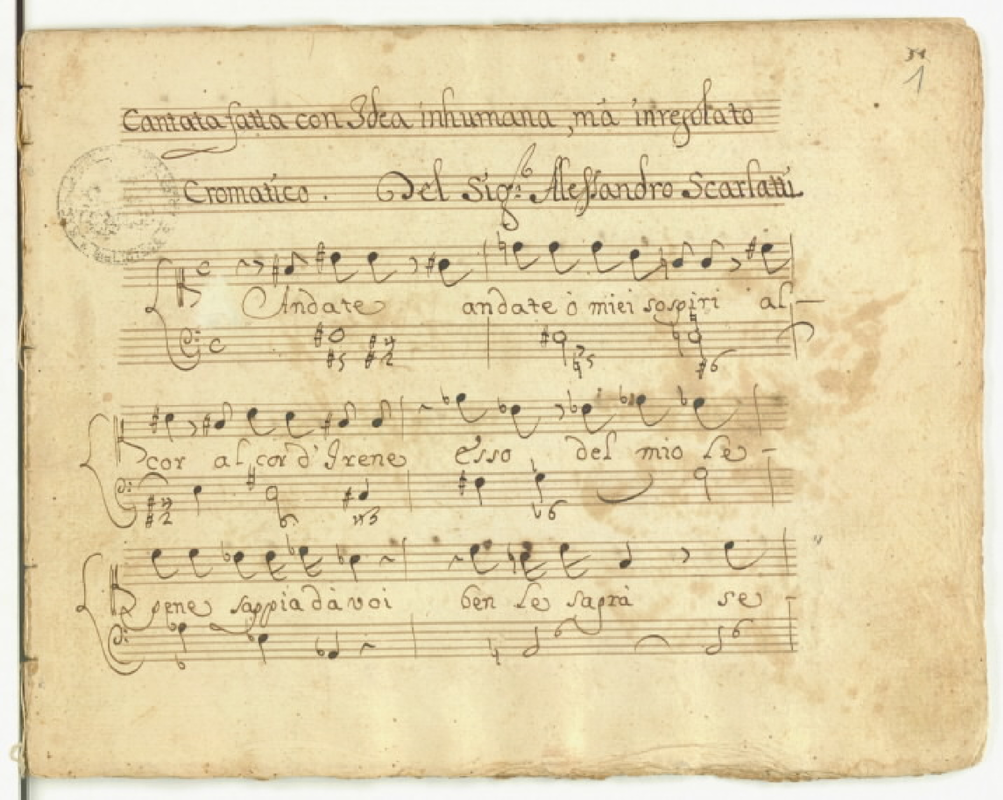 31
1
Cantata fatta con Idea inhumana, mà inregolato
Cromatico. Del Sig.r Alessandro Scarlatti
Andate andate ò miei sospiri al
cor al cor d'Irene esso del mio le
pene sappia dà voi ben le saprà se